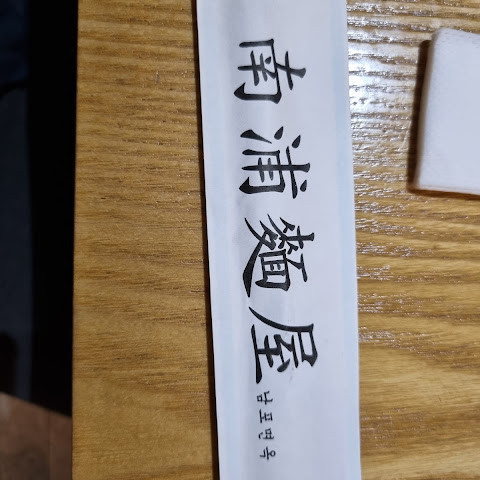 南浦麵屋
남포면옥